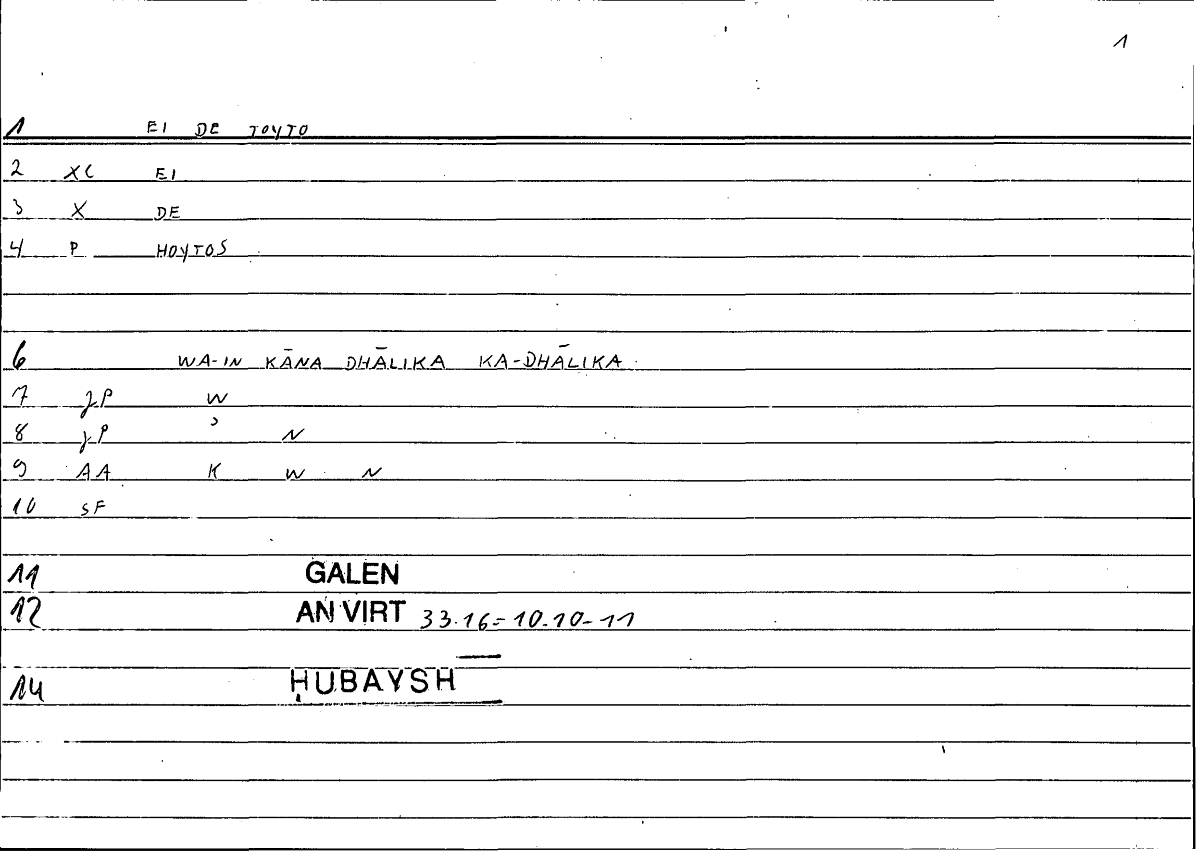 1
1 EI DE TOYTO
2 XC EI
3 X DE
4 P HOYTOS
6 WA-IN KĀNA DHĀLIKA KA-DHĀLIKA
7 JP W
8 JP ʾ N
9 AA K W N
10 SF
11 GALEN
12 AN VIRT 33.16=10.10-11
14 ḤUBAYSH